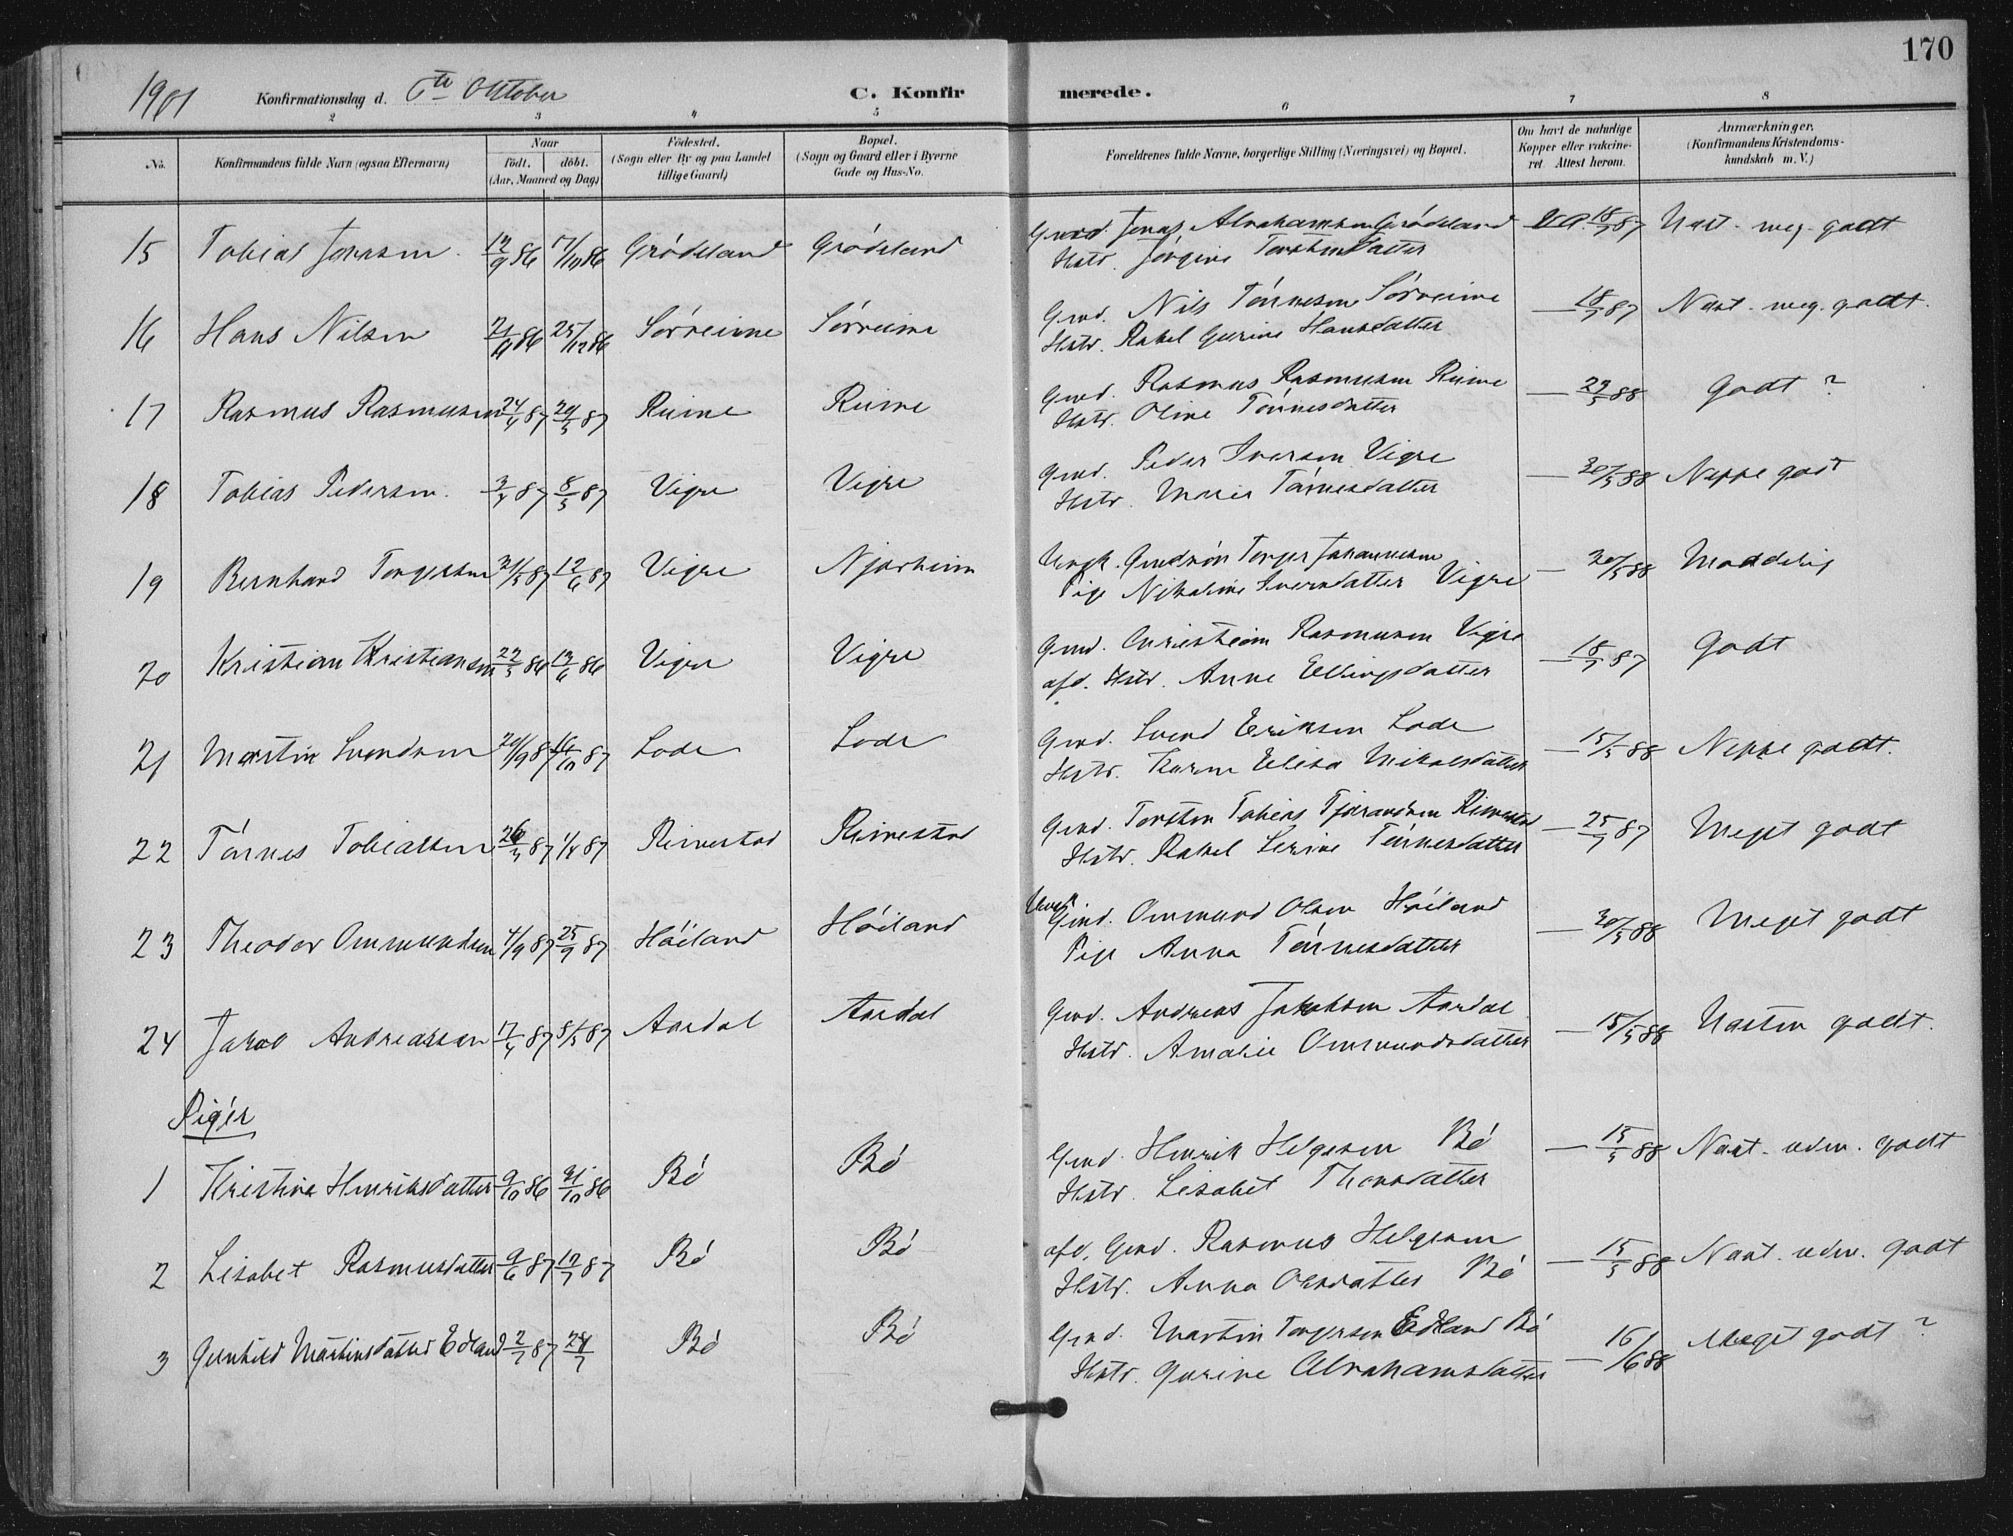 170
1901 Konfirmationsdag d. 6te Oktober C. Konfirmerede.
2 3 4 5 6 7 8
No. Konfirmandens fulde Navn (ogsaa Efternavn) Naar født. døbt. (Aar, Maaned og Dag) Fødested. (Sogn eller By og paa Landet tillige Gaard) Bopæl. (Sogn og Gaard eller i Byerne Gade og Hus-No. Forældrenes fulde Navne, borgerlige Stilling (Næringsvei) og Bopæl. Om havt de naturlige Kopper eller vakcineret. Attest herom. Anmærkninger. (Konfirmandens Kristendomskundskab m. V.)
15 Tobias Jonassen 12/9 86 17/10 86 Grødeland Grødeland Gmd. Jonas Abrahamsen Grødeland 18/7 87 Næst. meg. godt
Hstr. Jørgine Torstensdatter
16 Hans Nilsen 21/11 86 25/12 86 Sørreime Sørreime Gmd. Nils Tønnesen Sørreime — 18/7 87 Næst. meg. godt.
Hstr. Rakel Gurine Hansdatter
17 Rasmus Rasmussen 24/4 87 20/5 87 Reime Reime Gmd. Rasmus Rasmussen Reime — 29/5 88 Godt ?
Hstr. Oline Tønnesdatter
18 Tobias Pedersen 3/4 87 8/5 87 Vigre Vigre Gmd. Peder Iversen Vigre — 30/5 88 Neppe godt
Hstr. Marie Tønnesdatter
19 Bernhard Torgersen 31/5 87 12/6 87 Vigre Njærheim Ungk. Gmdsøn Torger Johannesen — 30/5 88 Maadelig
Pige Nikoline Iversdatter Vigre
20 Kristian Kristiansen 22/5 86 13/6 86 Vigre Vigre Gmd. Christian Rasmussen Vigre — 18/7 87 Godt
afd. Hstr. Anne Ellingsdatter
21 Martin Svendsen 20/9 87 16/10 87 Lode Lode Gmd. Svend Eriksen Lode — 15/5 88 Neppe godt.
Hstr. Karen Elisa Mikalsdatter
22 Tønnes Tobiassen 26/3 87 1/4 87 Rimestad Rimestad Gmd. Torsten Tobias Tjørandsen Rimestad — 25/7 87 Meget godt
Hstr. Rakel Serine Tønnesdatter
23 Theodor Ommundsen 4/9 87 25/9 87 Høiland Høiland Ungk. Gmd. Ommund Olsen Høiland — 30/5 88 Meget godt
Pige Anna Tønnesdatter
24 Jakob Andreassen 17/4 87 8/5 87 Aardal Aardal Gmd. Andreas Jakobsen Aardal — 15/5 88 Næsten godt.
Hstr. Amalie Ommundsdatter
Piger
1 Kristine Henriksdatter 9/10 86 31/10 86 Bø Bø Gmd. Henrik Helgesen Bø — 15/5 88 Næst. udm. godt
Hstr. Lisabet Thorsdatter
2 Lisabet Rasmusdatter 9/6 87 10/7 87 Bø Bø afd. Gmd. Rasmus Helgesen — 15/5 88 Næst. udm. godt
Hstr. Anna Olsdatter Bø
3 Gunhild Martinsdatter Edland 2/7 87 24/7 Bø Bø Gmd. Martin Torgersen Edland Bø — 16/6 88 Meget godt ?
Hstr. Gurine Abrahamsdatter